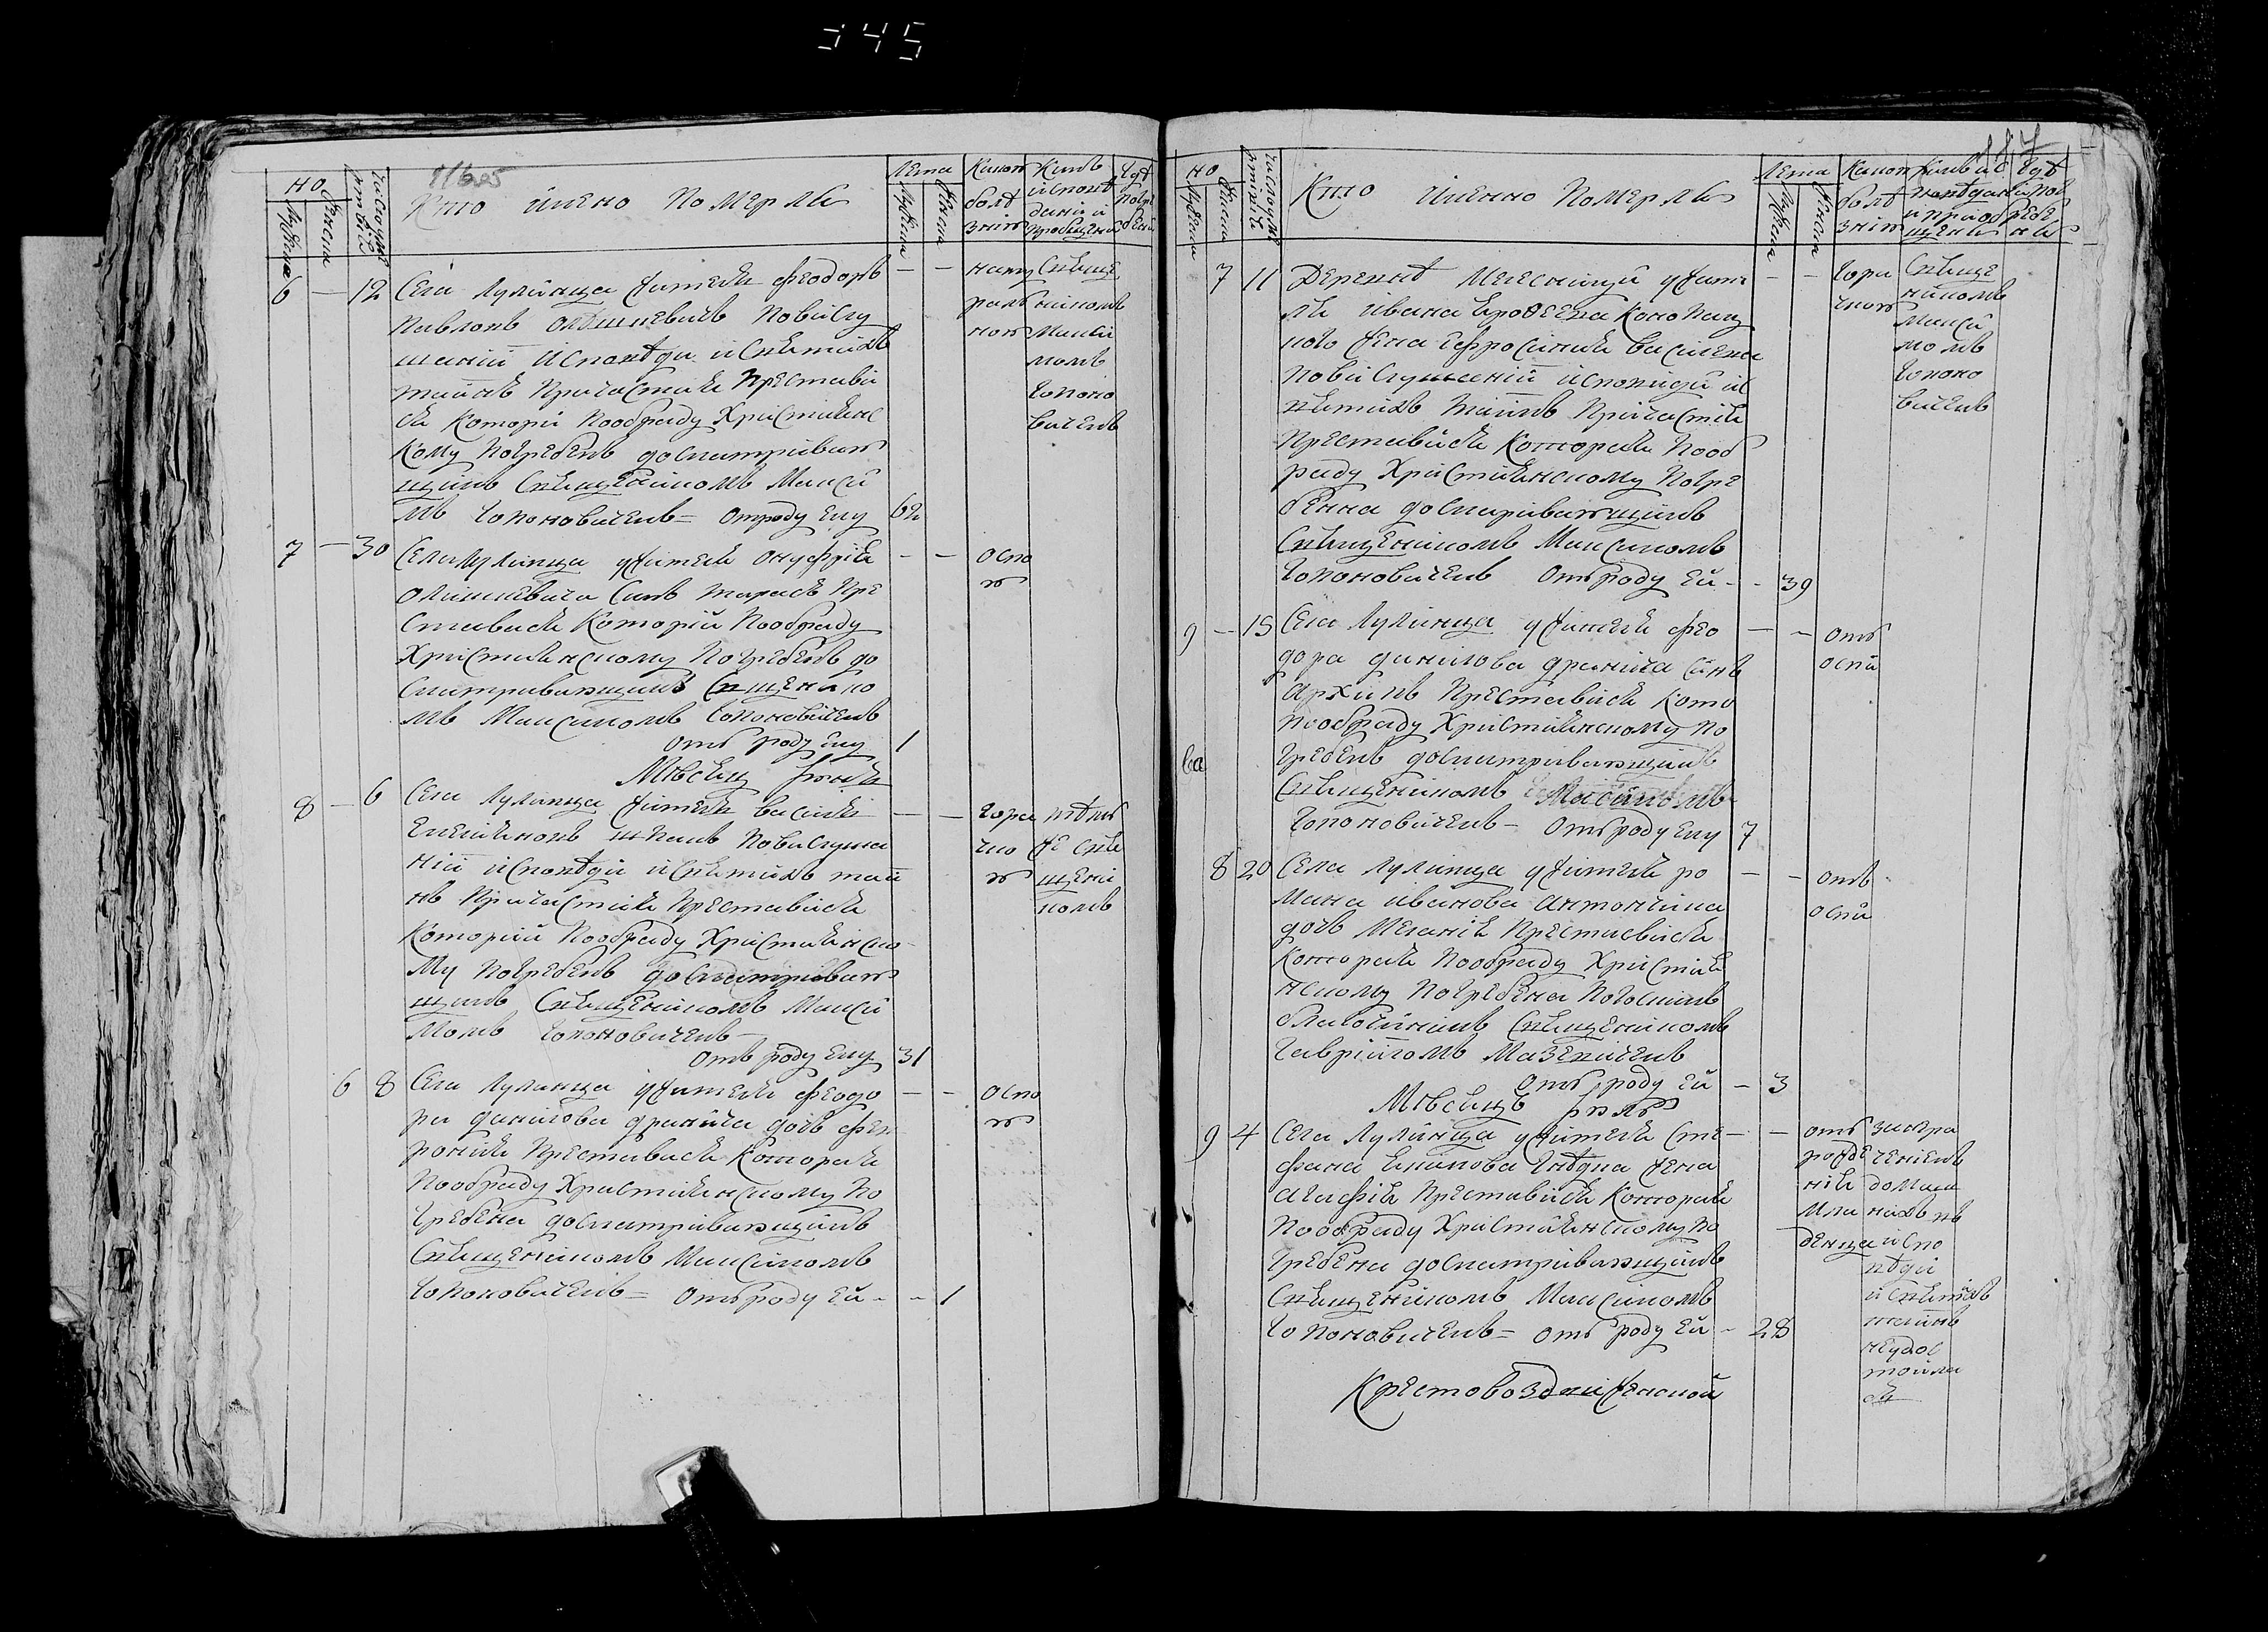 345
НО
Числоумертвія
Кто імено Померлъ
Лета
Какою болѣзнію
Кимъ исповѣдани и пріобщени
Гдѣ погребени
Мужеска
Женска
6 — 12 Села Лулинца житель Феодоръ — —
Павловъ Олѣшкевичъ По Вислу
шаніи Исповѣди и Святихъ
таинъ Причастия Престави
ся Которій По обряду Християнс
Кому Погребенъ досматриваю
щимъ Священикомъ Макси
мъ Гопоновичемъ = От роду ему 62
нату
ралною
Священикомъ
Макси
момъ
Гопоно
вичемъ
7 — 30 Села Лулинца жителя Онуфрія — —
Олишкевича Синъ Тарасъ Пре
ставися Которій По обряду
Християнскому Погребенъ до
сматривающимъ Священико
мъ Максимомъ Гопоновичемъ
отъ роду ему 1
оспо
ю
Мѣсяц Іюня
8 — 6 Села Лулинца житель Василій — —
По Вислуша
ніи исповѣди и Святихъ таи
нъ Причастия Преставися
Которій По обряду Християнско
му Погребенъ досматриваю
щимъ Священикомъ Макси
момъ Гопоновичемъ
отъ роду ему 31
горя
чко
ю
тѣмъ
же Свя
щени
комъ
6 8 Села Лулинца жителя Феодо — —
ра Данилова Дранича дочь Фев
ронія Преставися Которая
По обряду Християнскому По
гребена досматривающимъ
Священикомъ Максимомъ
Гопоновичемъ = отъ роду ей - - 1
оспо
ю
НО
Числоумертвія
Кто іменно Померлъ
Лета
Какою болѣзнію
Кимъ исповѣдани и пріобщени
Гдѣ погребени
7 11 Деревнѣ Мелесницы жите — —
ля Ивана Ерофеева Конопац
кого жена Ефросинія Василева
По Вислушаніи исповиди и С
вятихъ таинъ Причастія
Преставися Которая По об
ряду Християнскому Погре
бенна досматривающимъ
Священикомъ Максимомъ
Гопоновичемъ Отъ роду ей - - 39
горя
чкою
Священикомъ
Макси
момъ
Гопоно
вичемъ
9 — 15 Села Лулинца жителя Фео — —
дора Данилова Дранича Синъ
Архипъ Преставися Кото
По обряду Християнскому По
гребенъ досматривающимъ
Священикомъ Максимомъ
Гопоновичемъ - Отъ роду ему 7
отъ
оспи
8 20 Села Лулинца жителя Ро — —
мана Иванова Антончика
дочь Меланія Преставися
Которая По обряду Християн
нскому Погребена Погоскимъ
благочинимъ Священикомъ
Гавріиломъ Мазевичемъ
отъ роду ей — 3
отъ
оспи
Мѣсяцъ Іюль
9 4 Села Лулинца жителя Сте — —
фана жена
Агафія Преставися Которая
По обряду Християнскому По
гребена досматривающимъ
Священикомъ Максимомъ
Гопоновичемъ = отъ роду ей — 28
отъ
рожде
нія
мла
денца
за
чениемъ
домаш
нихъ
испо
вѣди
и Святихъ
таинъ
неудос
тоила
ся
Крестовоздвиженской